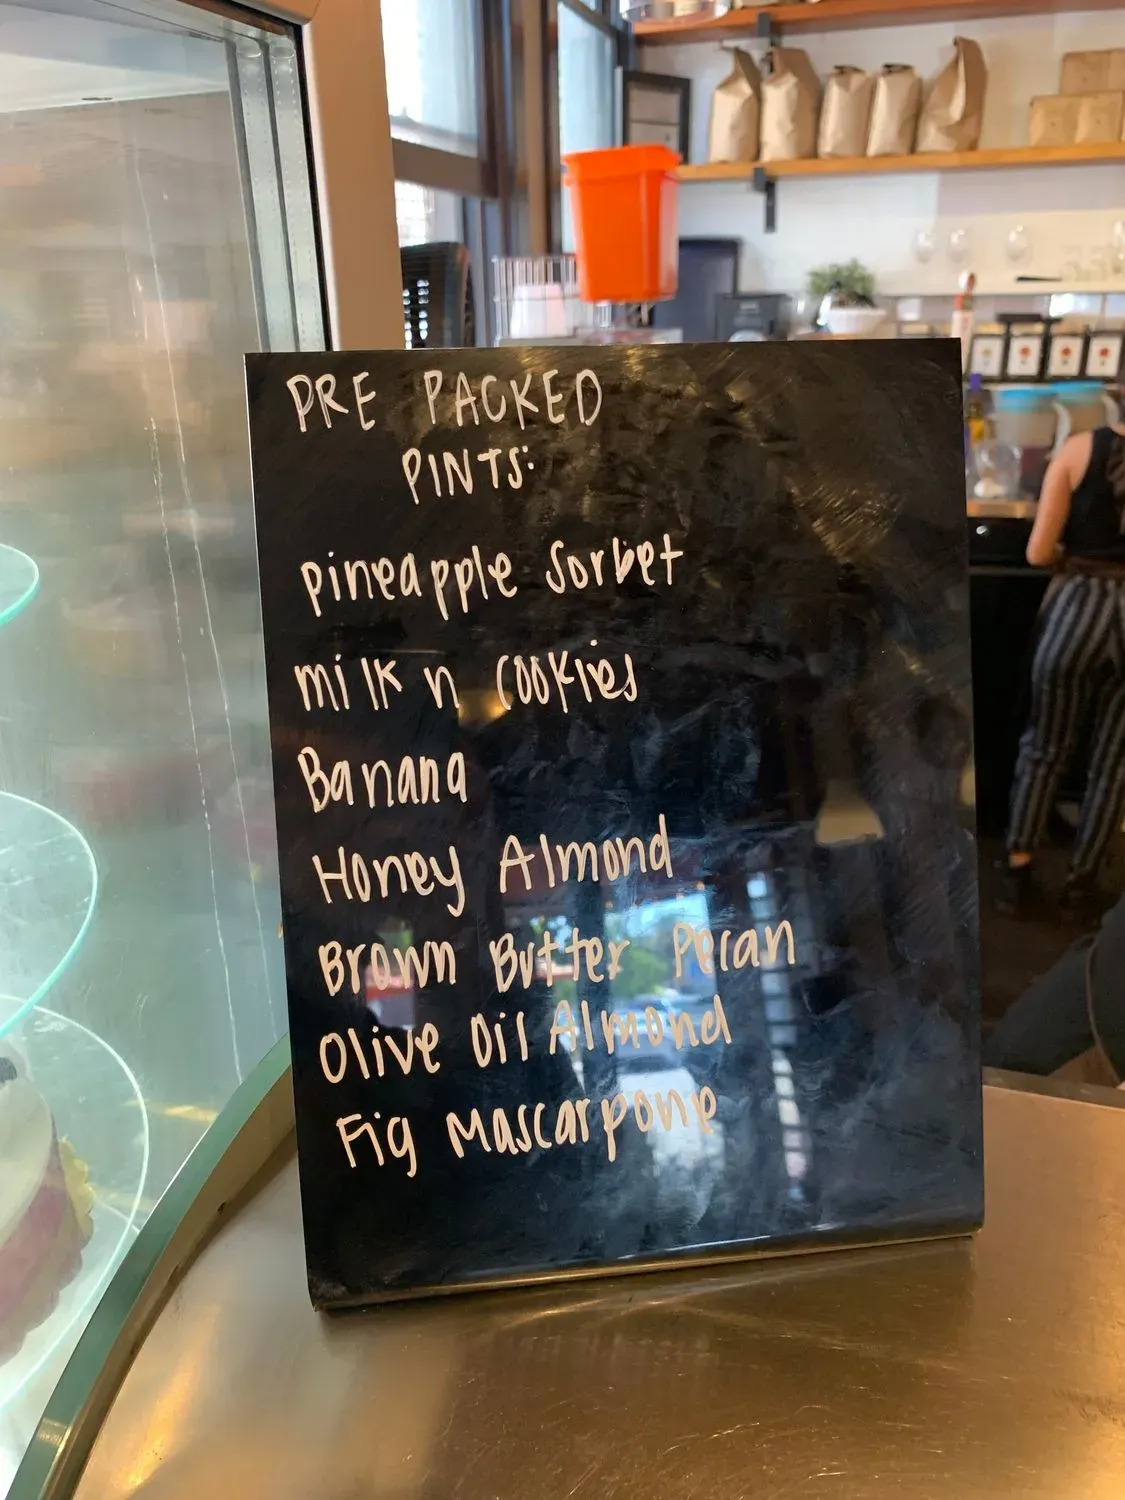 PRE PACKED
PINTS:
Pineapple Sorbet
milk n cookies
Banana
Honey Almond
Brown Butter Pecan
Olive Oil Almond
Fig Mascarpone